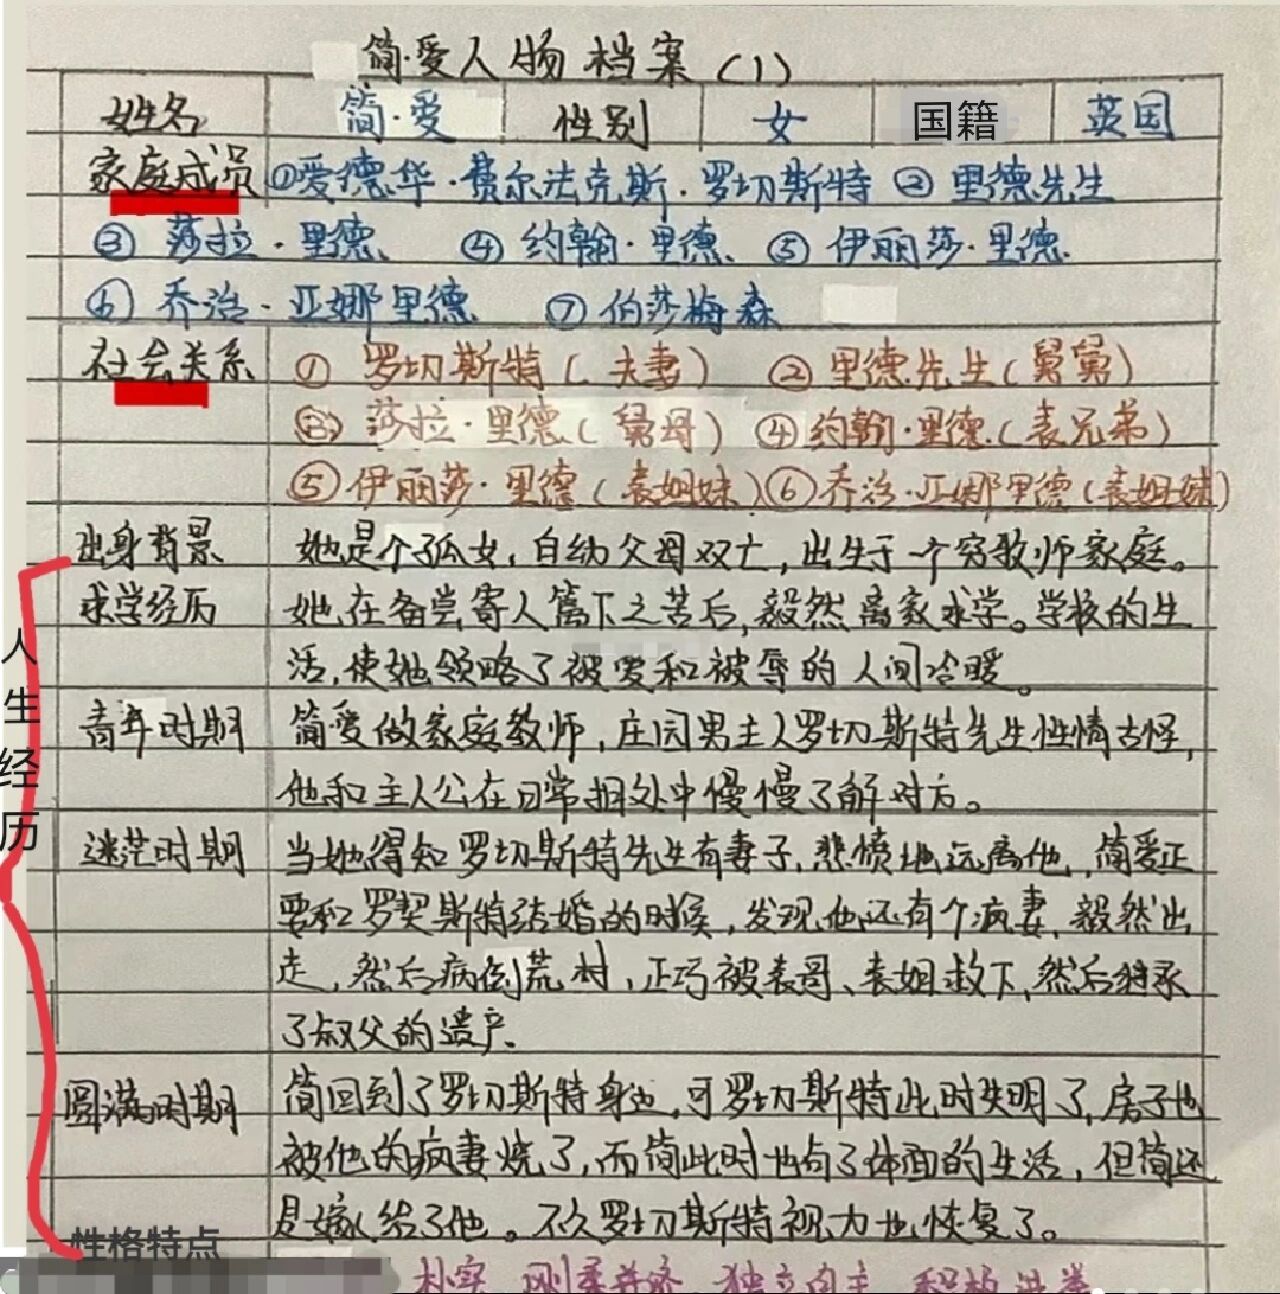 简·爱人物档案（1）
姓名 简·爱 性别 女 国籍 英国
家庭成员 ①爱德华·费尔法克斯·罗切斯特 ②里德先生
③莎拉·里德、 ④约翰·里德、 ⑤伊丽莎·里德、
⑥乔治·亚娜里德 ⑦伯莎梅森
社会关系 ①罗切斯特（夫妻） ②里德先生（舅舅）
③莎拉·里德（舅母） ④约翰·里德（表兄弟）
⑤伊丽莎·里德（表姐妹）⑥乔治·亚娜里德（表姐妹）
出身背景 她是个孤女，自幼父母双亡，出生于一个穷教师家庭。
求学经历 她在备尝寄人篱下之苦后，毅然离家求学。学校的生
活，使她领略了被爱和被辱的人间冷暖。
青年时期 简爱做家庭教师，庄园男主人罗切斯特先生性情古怪，
他和主人公在日常相处中慢慢了解对方。
人生经历
迷茫时期 当她得知罗切斯特先生有妻子，悲愤地远离他，简爱正
要和罗契斯特结婚的时候，发现他还有个病妻，毅然出
走，然后病倒荒村，正巧被表哥、表姐救下，然后继承
了叔父的遗产、
圆满时期 简回到了罗切斯特身边，可罗切斯特此时失明了，房子也
被他的病妻烧了，而简此时也有了体面的生活，但简还
是嫁给了他。不久罗切斯特视力也恢复了。
性格特点
朴实、刚柔并济、独立自主、积极进